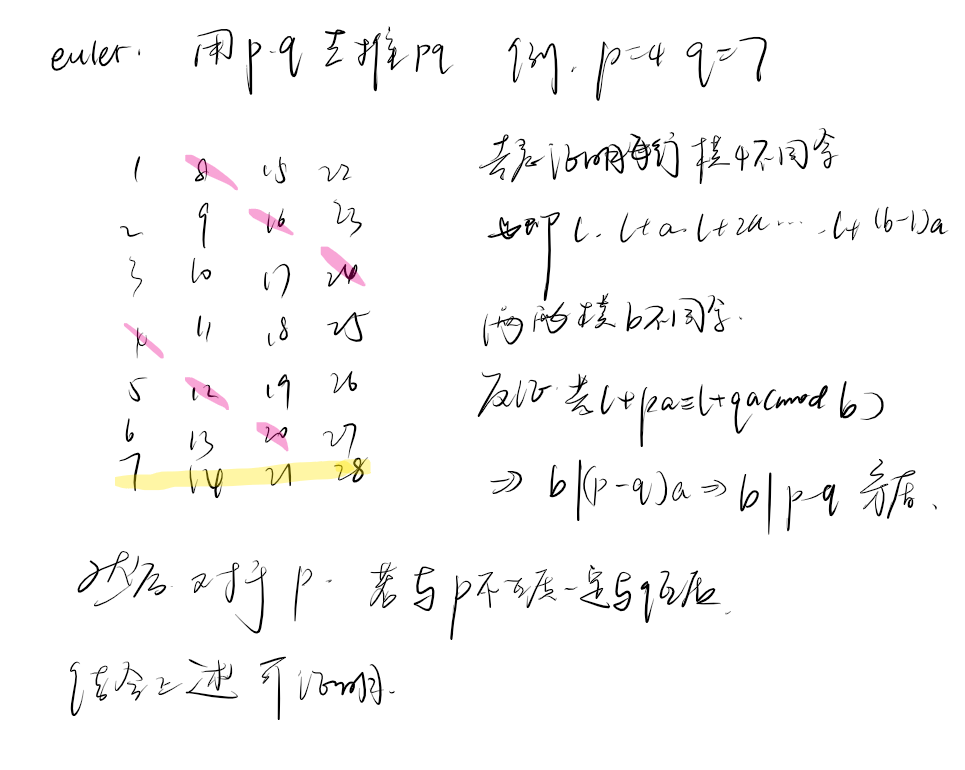 euler. 用p.q去推pq 例. p=4 q=7
1 8 15 22
2 9 16 23
3 10 17 24
4 11 18 25
5 12 19 26
6 13 20 27
7 14 21 28
去后证明每行模4不同余
即 l. l+a. l+2a .... l+(b-1)a
两两模b不同余.
反证 若l+pa≡l+qa(mod b)
⇒ b|(p-q)a ⇒ b|p-q 矛盾.
然后 对于p. 若与p不互质一定与q互质.
结合上述可证明.